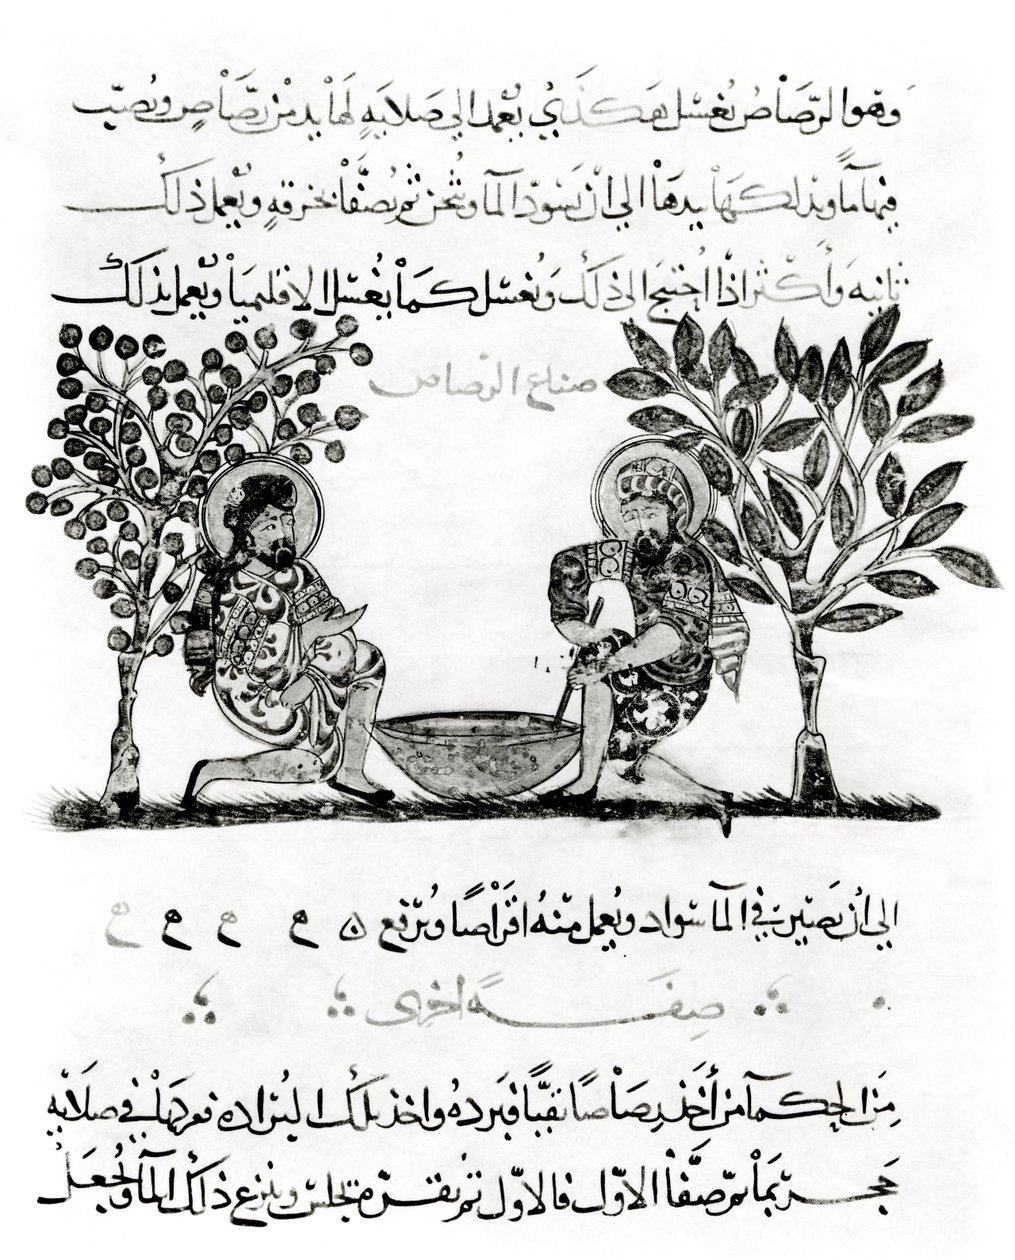 وهو الرصاص يغسل هكذي يعمد الي صلايهٍ لها يد من رصاصٍ ويصيّب
فيها ماً ويدلكها بيدها الي ان يسودّ الما ويثخن ثم يُصفّا بخرقهٍ ويُعمل ذلك
ثانيه وأكثر اذا اُحتيج الى ذلك ويُغسل كما يغُسل الاقليميا ويُعمل بذلك
صناع الرصاص
الي أن يصير في الما سواد ويُعمل منهُ اقراصًا ويُرفع ه
صفةً اخرى
من الحكما من أخذ رصاصًا نقيًّا فبردهُ واخذ تلك البُراده فعركها في صلايه
حجر بما ثم صفّا الاوّل فالاوّل ثم يجلس وينزع ذلك الما ويُجعل